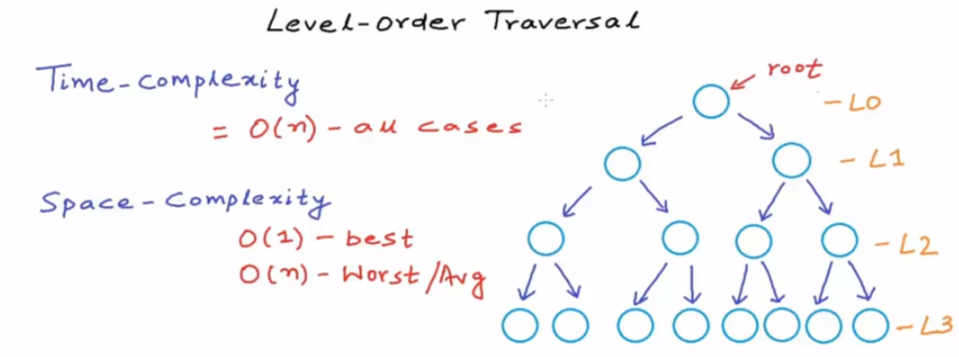 Level-order Traversal
Time-complexity
= O(n) - all cases
Space-Complexity
O(1) - best
O(n) - Worst/Avg
root
- L0
- L1
- L2
- L3